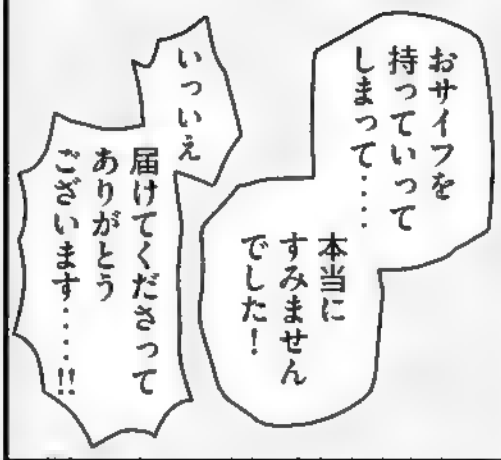 おサイフを
持っていって
しまって‥‥
本当に
すみません
でした！
いっいえ
届けてくださって
ありがとう
ございます‥‥!!